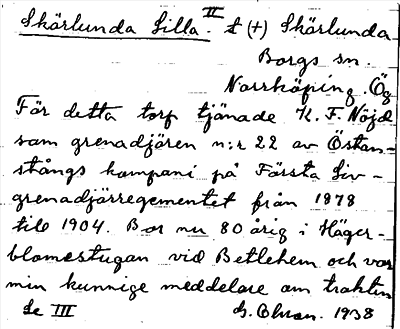 Skärlunda Lilla. II t (+) Skärlunda
Borgs sn.
Norrköping. Ög
För detta torp tjänade K. F. Nöjd
som grenadjären n:r 22 av Östan-
stångs kompani på Första Liv-
grenadjärregementet från 1878
till 1904. Bor nu 80 årig i Häger-
blomstugan vid Betlehem och var
min kunnige meddelare om trakten
Se III
1938